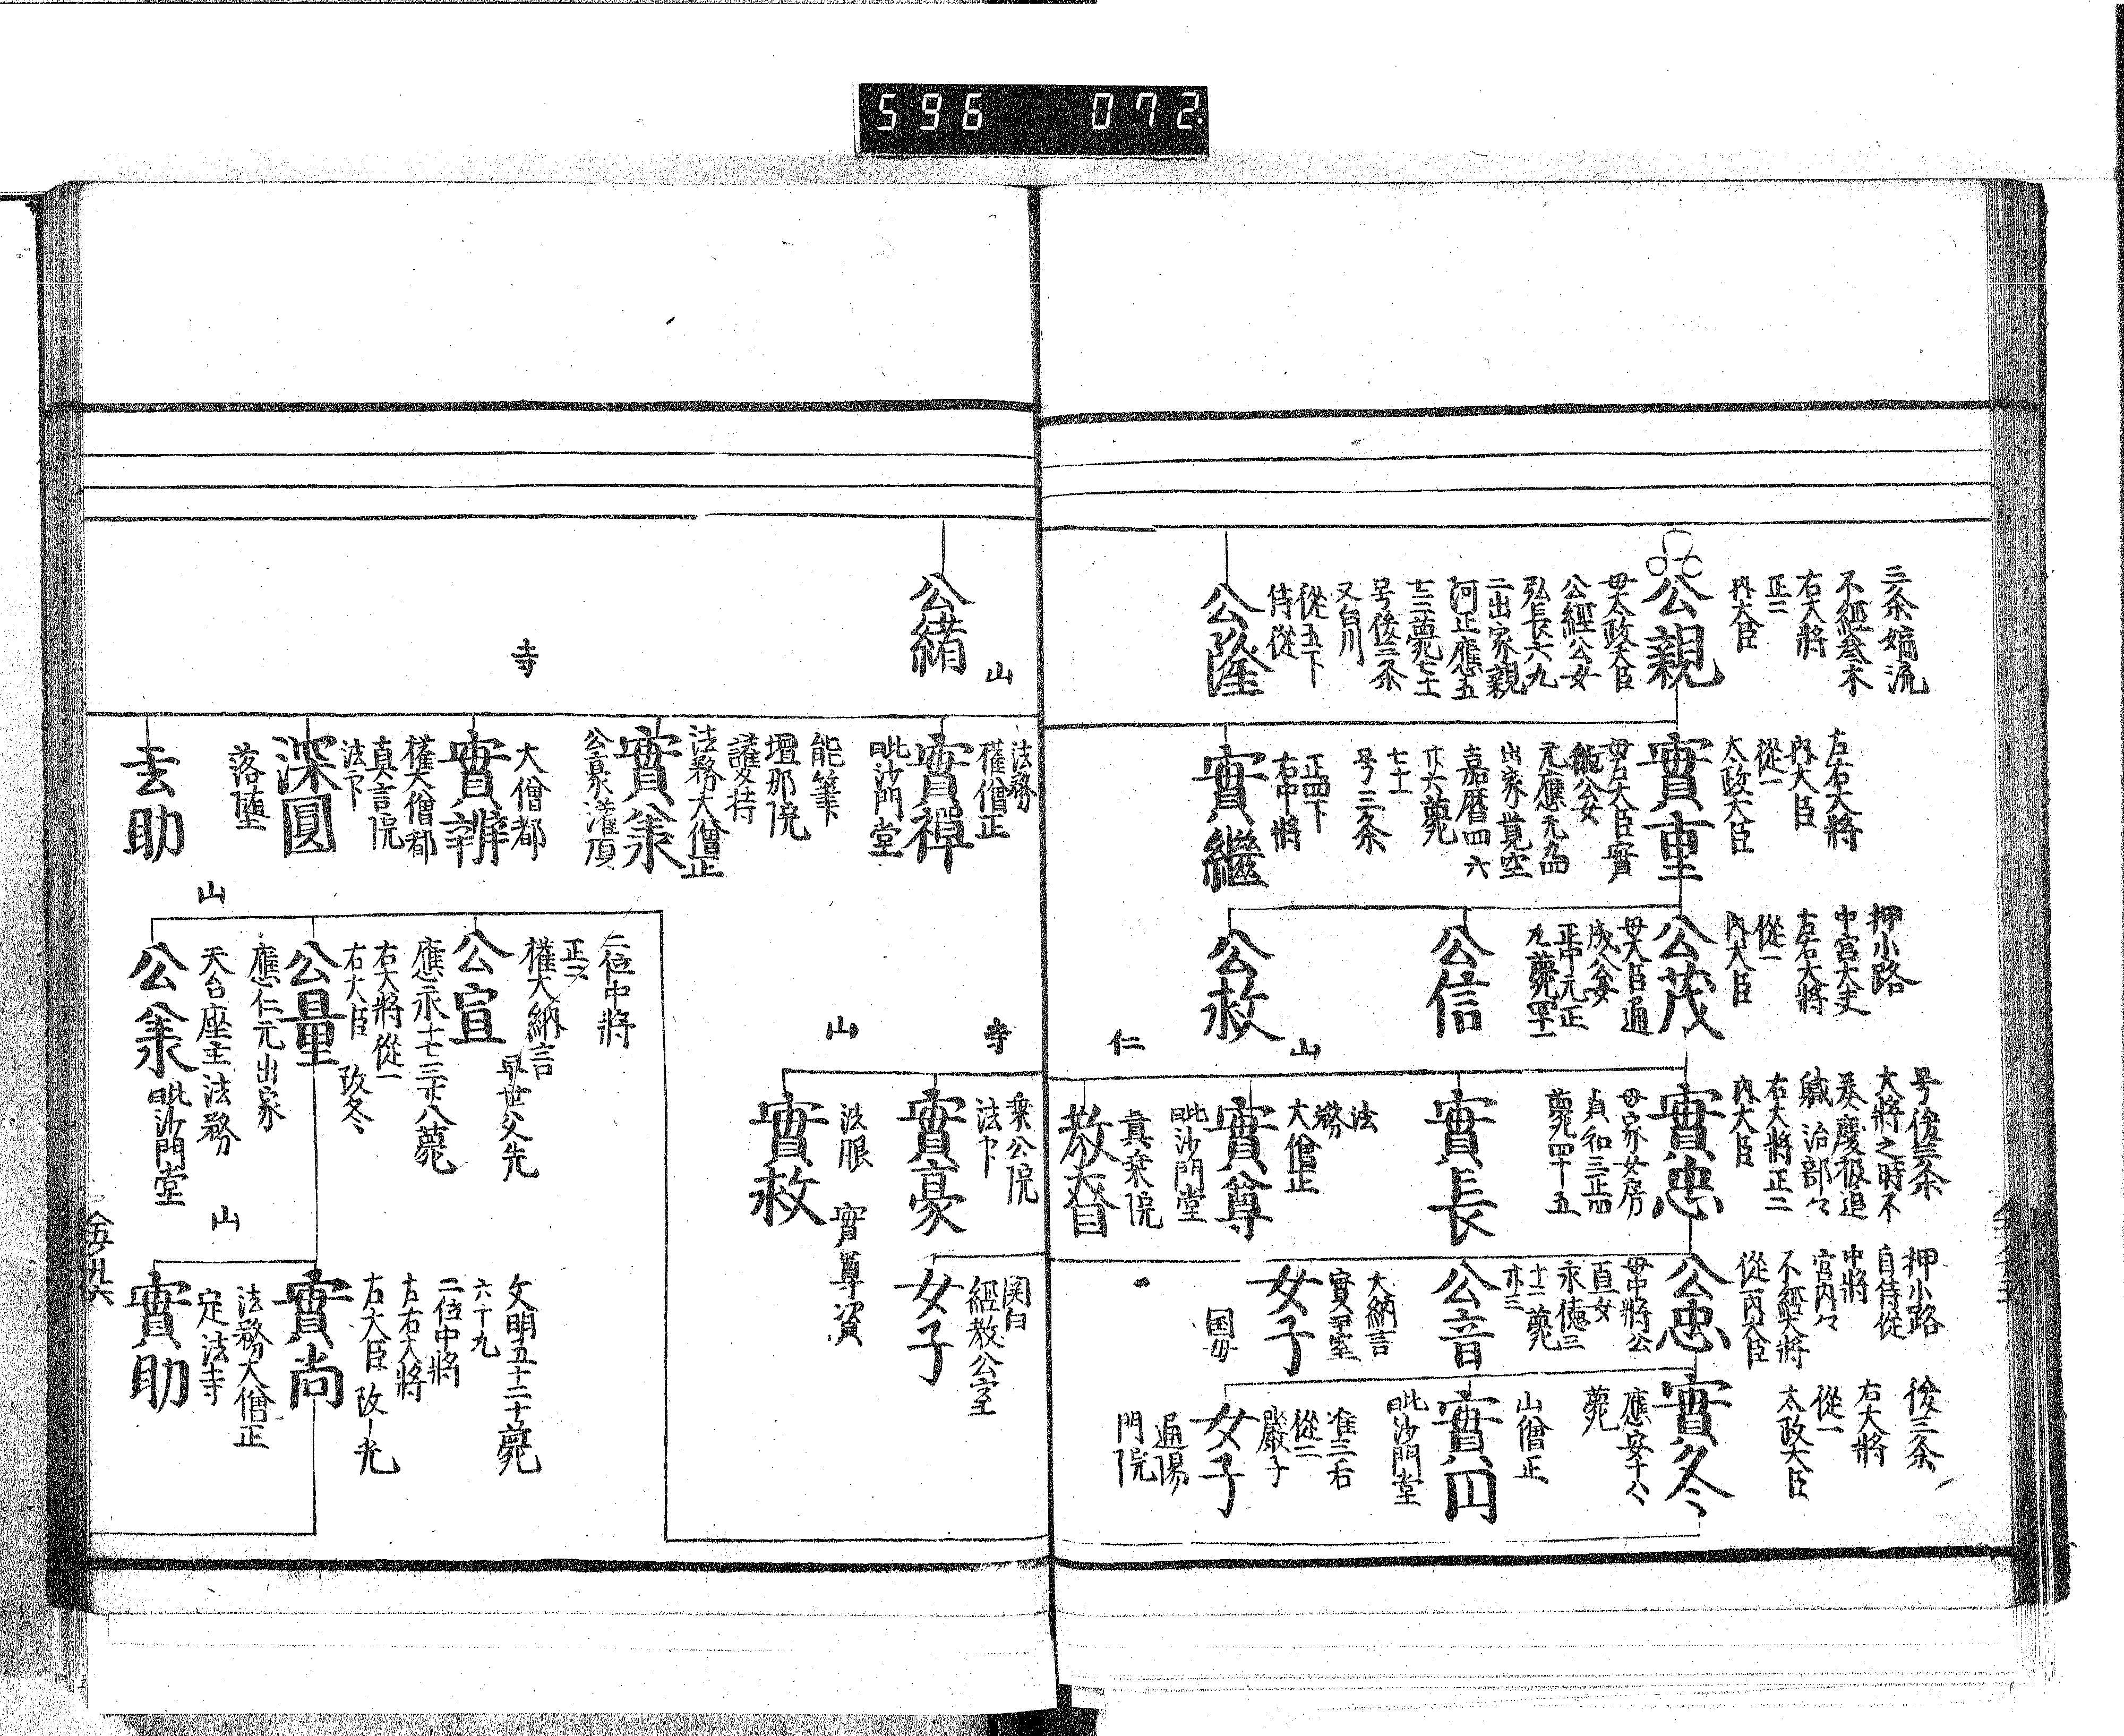 596 072
三条嫡流
不經參木
右大將
正二
内大臣
公親
母太政大臣
公經公女
弘長六九
二出家親
阿正應五
七二薨七十
号後三条
又白川
從五下
侍從
公隆
左右大將
内大臣
從一
太政大臣
實重
出家覚空
嘉暦四六
廿六薨
七十
号三条
正四下
右中將
實繼
押小路
中宮大夫
左右大將
從一
内大臣
公茂
母大臣通
成公女
正中元正
九薨四十一
公信
山
公救
号後三条
大將之時不
奏慶被追
職治部々
右大將正二
内大臣
實忠
母家女房
貞和三正四
薨四十五
實長
法
務
大僧正
實尊
毗沙門堂
仁
真乗院
教督
押小路
自侍從
中將
宮内々
不經大將
從一内大臣
公忠
母中將公
直女
永徳三
十二薨
廿三
公音
大納言
女子
国母
後三条
右大將
從一
太政大臣
實冬
薨
山僧正
實円
毗沙門堂
准三右
從二
嚴子
女子
通陽
門院
公緒
山
法務
權僧正
實禅
毗沙門堂
能筆
壇那院
護持
法務大僧正
實彙
公豪灌頂
寺
大僧都
實辨
權大僧都
真言院
法下
深圓
落堕
玄助
寺
乗公院
法下
實豪
山
法眼
實尊資
實救
関白
經教公室
女子
二位中將
正二
權大納言
早世父先
公宣
應永十七三廿八薨
右大將從一
右大臣
改冬
公量
應仁元出家
山
天台座主法務
公彙
毗沙門堂
文明五十二十薨
六十九
二位中將
左右大將
右大臣
改ー光
實尚
山
法務大僧正
定法寺
實助